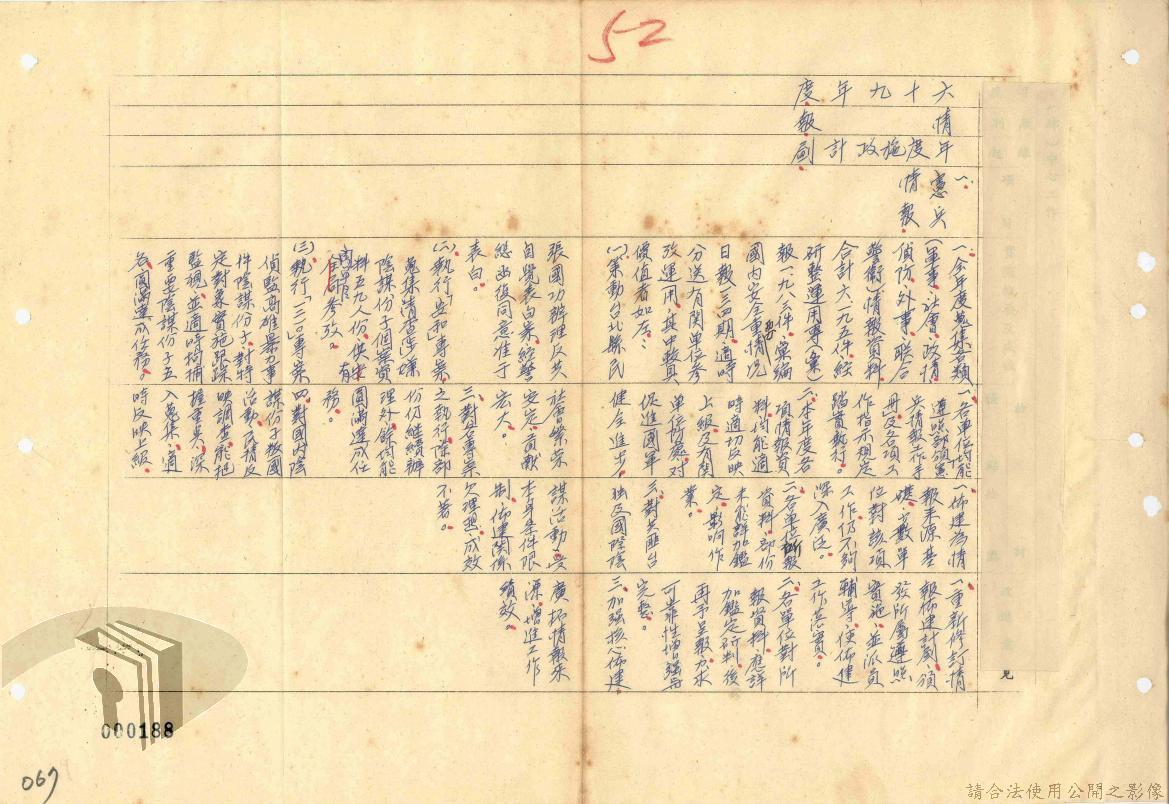 52
六十九年度
情報
年度施政計劃
一、憲兵
情報
一、全年度蒐集各類
(軍事、社會、政情
偵防、外事、聯合
警衛)情報資料
合計六、六九五件經
研整運用專(案)
報一、九八六件、彙編
國內安全重要情況
日報三一四期、適時
分送有關單位參
攷運用、其中較具
價值者如左:
(一)策動台北縣民
張國功辦理反共
自覺表白案、經警
總出復同意准予
表白。
(二)執行「安和」專案
蒐集清查涉嫌
陰謀份子個案資
料五九人份、供
有關單位參攷。
(三)執行「一二一〇」專案
偵監高雄暴力事
件陰謀份子、對特
定對象實施跟踪
監視、並適時拘捕
重要陰謀份子五
名、圓滿達成任務。
一、各單位均能
遵照部頒憲
兵情報工作手
冊及各項工
作指示規定
踏實執行。
二、本年度各
項情報資
料均能適
時適切反映
上級及有關
單位採處、對
促進國軍
健全進步、
社會繁榮
安定、貢獻
宏大。
三、對各專案
之執行、除部
份仍繼續辦
理外、餘均能
圓滿達成任
務。
四、對國內陰
謀份子叛國
活動及情反
映調查、能把
握重點、深
入蒐集、適
時反映上級。
一、佈建為情
報來源基
礎、少數單
位對該項
工作仍不夠
深入廣泛。
二、各單位所報
資料、部份
未能詳加鑑
定、影响作
業。
三、對共匪台
獨及國際陰
謀活動、受
本身条件限
制、佈建關係
欠理想、成效
不著。
一、重新修訂情
報佈建計劃、頒
發所屬遵照
實施、並派員
輔導、使佈建
工作落實。
二、各單位對所
報資料、應詳
加鑑定研判後
再予呈報、力求
可靠性增強與
完整。
三、加强核心佈建、
廣拓情報來
源、增進工作
績效。
見
000188
067
請合法使用公開之影像